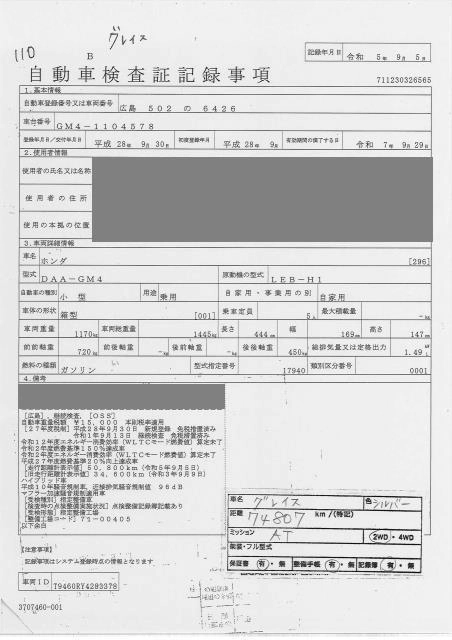 110
B
グレイス
記録年月日 令和 5年 9月 5日
自動車検査証記録事項
711230326565
1.基本情報
自動車登録番号又は車両番号 広島 502 の 6426
車台番号 GM4-1104578
登録年月日/交付年月日 平成 28年 9月 30日 初度登録年月 平成 28年 9月 有効期間の満了する日 令和 7年 9月 29日
2.使用者情報
使用者の氏名又は名称
使用者の住所
使用の本拠の位置
3.車両詳細情報
車名 ホンダ [296]
型式 DAA-GM4 原動機の型式 LEB-H1
自動車の種別 小型 用途 乗用 自家用・事業用の別 自家用
車体の形状 箱型 [001] 乗車定員 5人 最大積載量 -kg
車両重量 1170kg 車両総重量 1445kg 長さ 444cm 幅 169cm 高さ 147cm
前前軸重 720kg 前後軸重 -kg 後前軸重 -kg 後後軸重 450kg 総排気量又は定格出力 1.49L
燃料の種類 ガソリン 型式指定番号 17940 類別区分番号 0001
4.備考
[広島], 継続検査, [OSS]
自動車重量税額 ¥15,000 本則税率適用
[27年度税制]平成28年9月30日 新規登録 免税措置済み
令和1年9月13日 継続検査 免税措置済み
令和12年度エネルギー消費効率(WLTCモード燃費値)算定未了
令和2年度燃費基準150%達成車
令和2年度エネルギー消費効率(WLTCモード燃費値)算定未了
平成27年度燃費基準20%向上達成車
[走行距離計表示値]50,800km(令和5年9月5日)
[旧走行距離計表示値]34,600km(令和3年9月9日)
ハイブリッド車
平成10年騒音規制車、近接排気騒音規制値 96dB
マフラー加速騒音規制適用車
[受検種別]指定整備車
[検査時の点検整備実施状況]点検整備記録簿記載あり
[受検形態]指定整備工場
[整備工場コード]71-00405
以下余白
車名 グレイス 色 シルバー
距離 74807 km/(特記)
ミッション AT 2WD・4WD
架装・フル型式
保証書 有・無 整備手帳 有・無 記録簿 有・無
[注意事項]
記録事項はシステム登録時点の情報となります。
車両ID 79460RY4283378
3707460-001